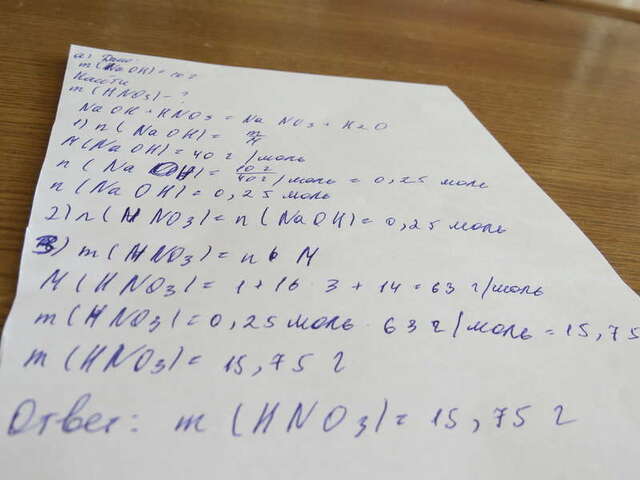 а) Дано
m(NaOH) = 10 г
Найти
m(HNO3) - ?
NaOH + HNO3 = NaNO3 + H2O
1) n(NaOH) = m/M
M(NaOH) = 40 г/моль
n(NaOH) = 10 г/40 г/моль = 0,25 моль
n(NaOH) = 0,25 моль
2) n(HNO3) = n(NaOH) = 0,25 моль
3) m(HNO3) = n M
M(HNO3) = 1 + 16 · 3 + 14 = 63 г/моль
m(HNO3) = 0,25 моль · 63 г/моль = 15,75
m(HNO3) = 15,75 г
Ответ: m(HNO3) = 15,75 г